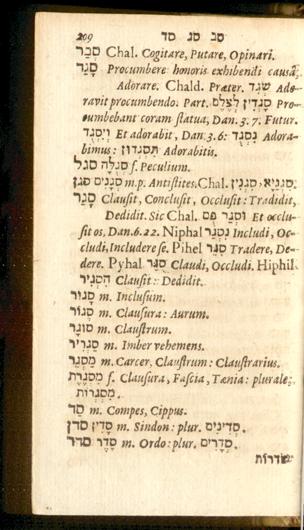 209 סב סג סד
סְבַר Chal. Cogitare, Putare, Opinari.
סָגַד Procumbere honoris exhibendi causâ,
Adorare. Chald. Præter. סְגִד Ado-
ravit procumbendo. Part. סָגְדִין לְצֶלֶם Pro-
cumbebant coram statua, Dan. 3. 7. Futur.
וְיִסְגֻּד Et adorabit, Dan. 3. 6: נִסְגֻּד Adora-
bimus: תִּסְגְּדוּן Adorabitis.
סגל סְגֻלָּה f. Peculium.
סגן סְגָנִים m.p. Antistites, Chal. סִגְנִין, סִגְנַיָּא.
סָגַר Clausit, Conclusit, Occlusit: Tradidit,
Dedidit. Sic Chal. וּסְגַר פֻּם Et occlu-
sit os, Dan. 6. 22. Niphal נִסְגַּר Includi, Oc-
cludi, Includere se. Pihel סִגֵּר Tradere, De-
dere. Pyhal סֻגַּר Claudi, Occludi. Hiphil
הִסְגִּיר Clausit: Dedidit.
סָגוּר m. Inclusum.
סְגוֹר m. Clausura: Aurum.
סוּגָר m. Claustrum.
סַגְרִיר m. Imber vehemens.
מַסְגֵּר m. Carcer, Claustrum: Claustrarius.
מִסְגֶּרֶת f. Clausura, Fascia, Tænia: plurale,
מִסְגְּרוֹת.
סַד m. Compes, Cippus.
סדן סָדִין m. Sindon: plur. סְדִינִים.
סדר סֵדֶר m. Ordo: plur. סְדָרִים.
שדרות